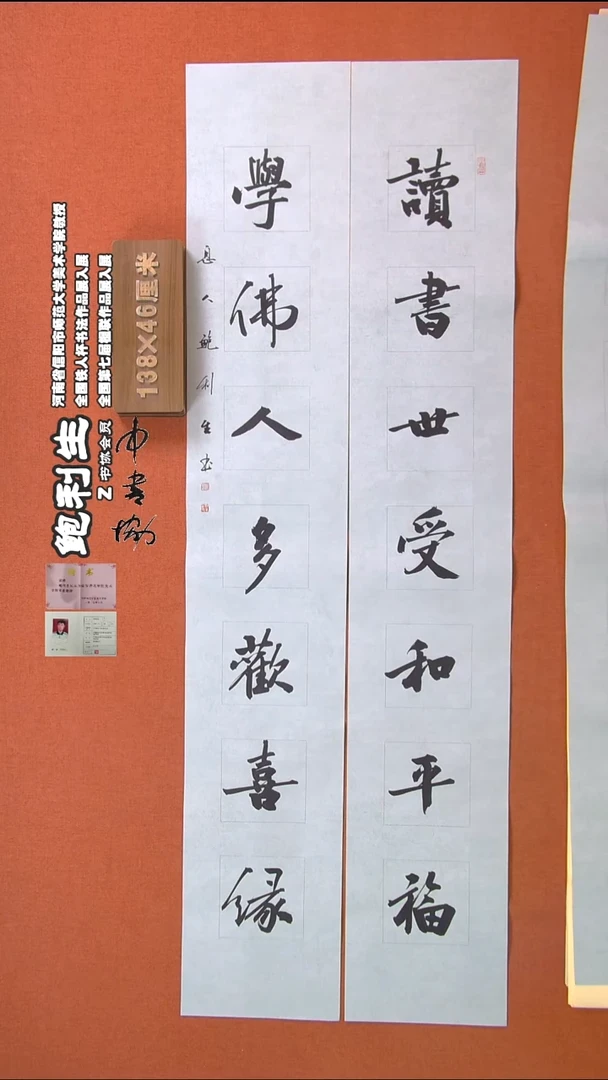 讀書世受和平福
學佛人多歡喜緣
息人鮑利生书
138×46厘米
河南省信阳市师范大学美术学院教授
全国铁人杯书法作品展入展
全国第七届楹联作品展入展
鲍利生
Z书协会员
中书协